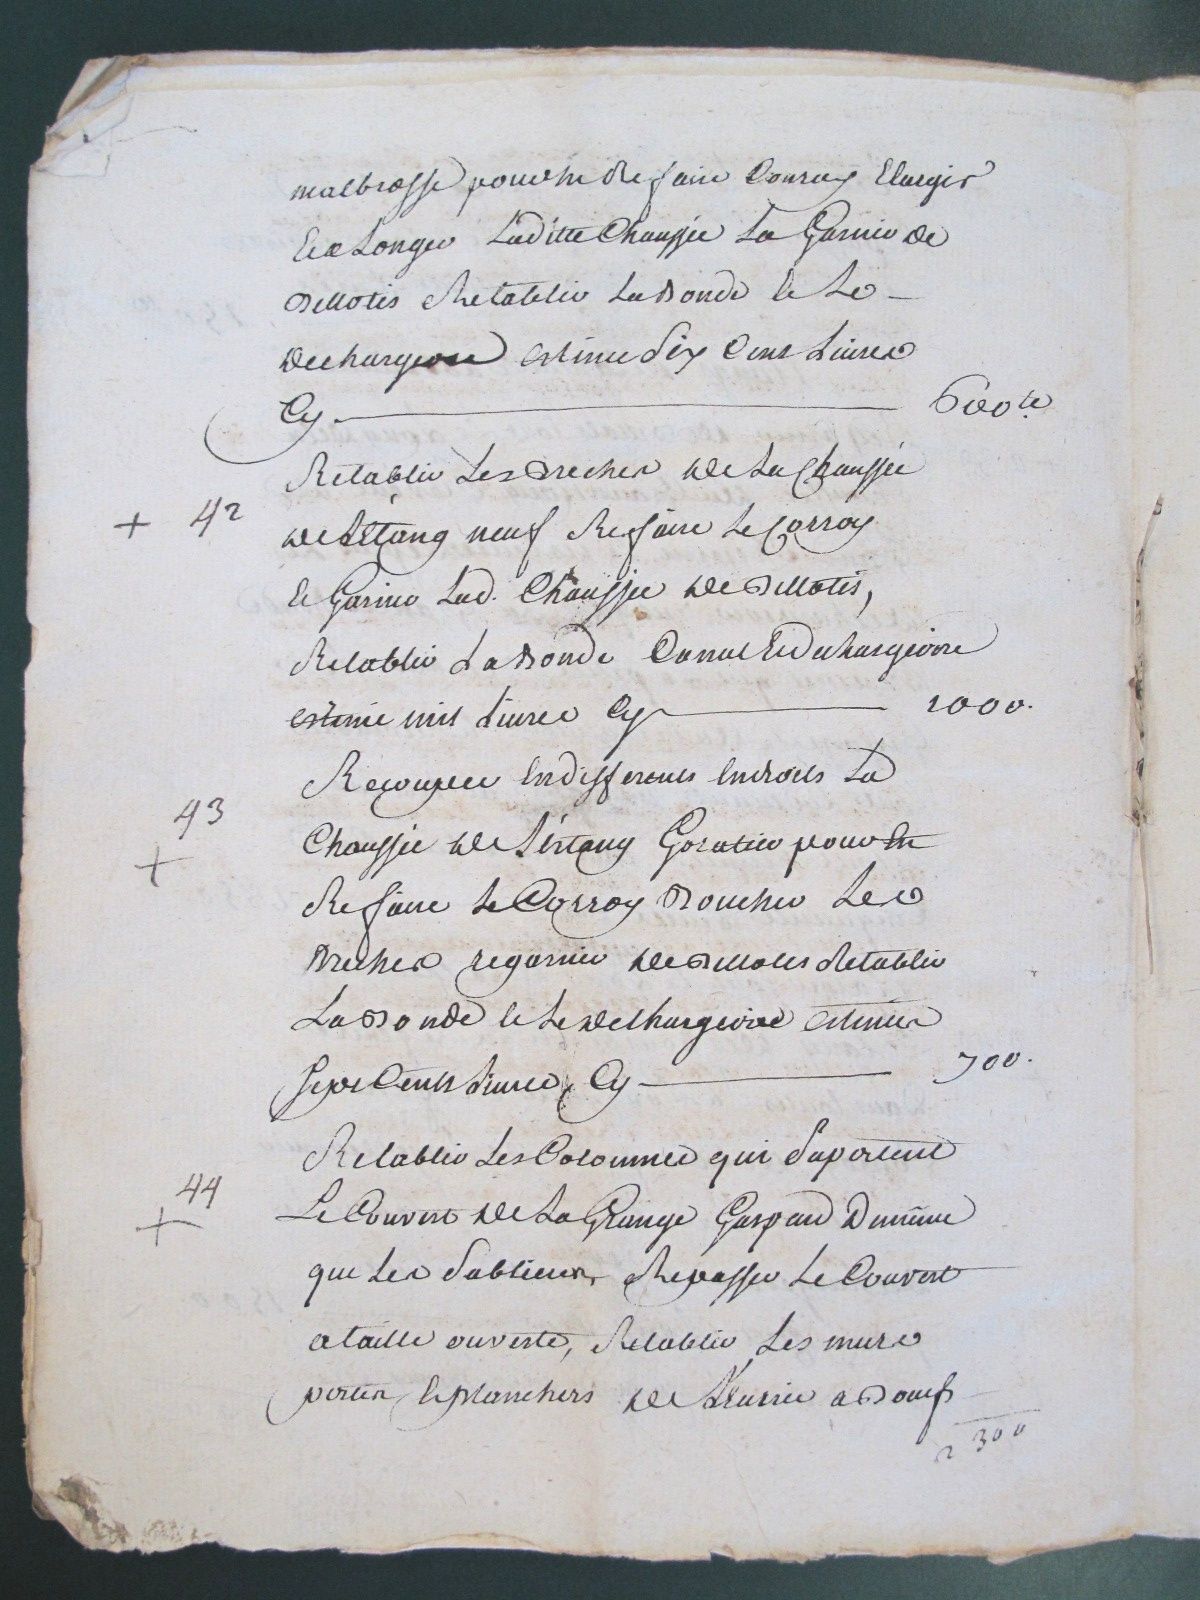 malbrosse pour en Refaire Conroy Elargir
Et alonger Laditte Chaussée La Garnir de
Mottes Retablir La Bonde et Le
dechargeoire estimé Six Cent Livres
Cy 600 lt
42 Retablir Les Breches de La Chaussée
de L'Etang neuf Refaire Le Corroy
et Garnir Lad. Chaussée de Mottes,
Retablir La Bonde Canal Et Dechargeoire
estimé mil Livres Cy 1000.
43 Recouper En differents Endroits La
Chaussée de L'estang pour En
Refaire Le Corroy Boucher Les
Breches regarnir de Mottes Retablir
La Bonde et Le dechargeoire estimé
Sept Cents Livres Cy 700.
44 Retablir Les Colonnes qui Suportent
Le Couvert de La Grange Gaspard De meme
que Les Sablieres Repasser Le Couvert
a taille ouverte, Retablir Les murs
portes, et planchers de L'Ecurie a Boeufs
2300